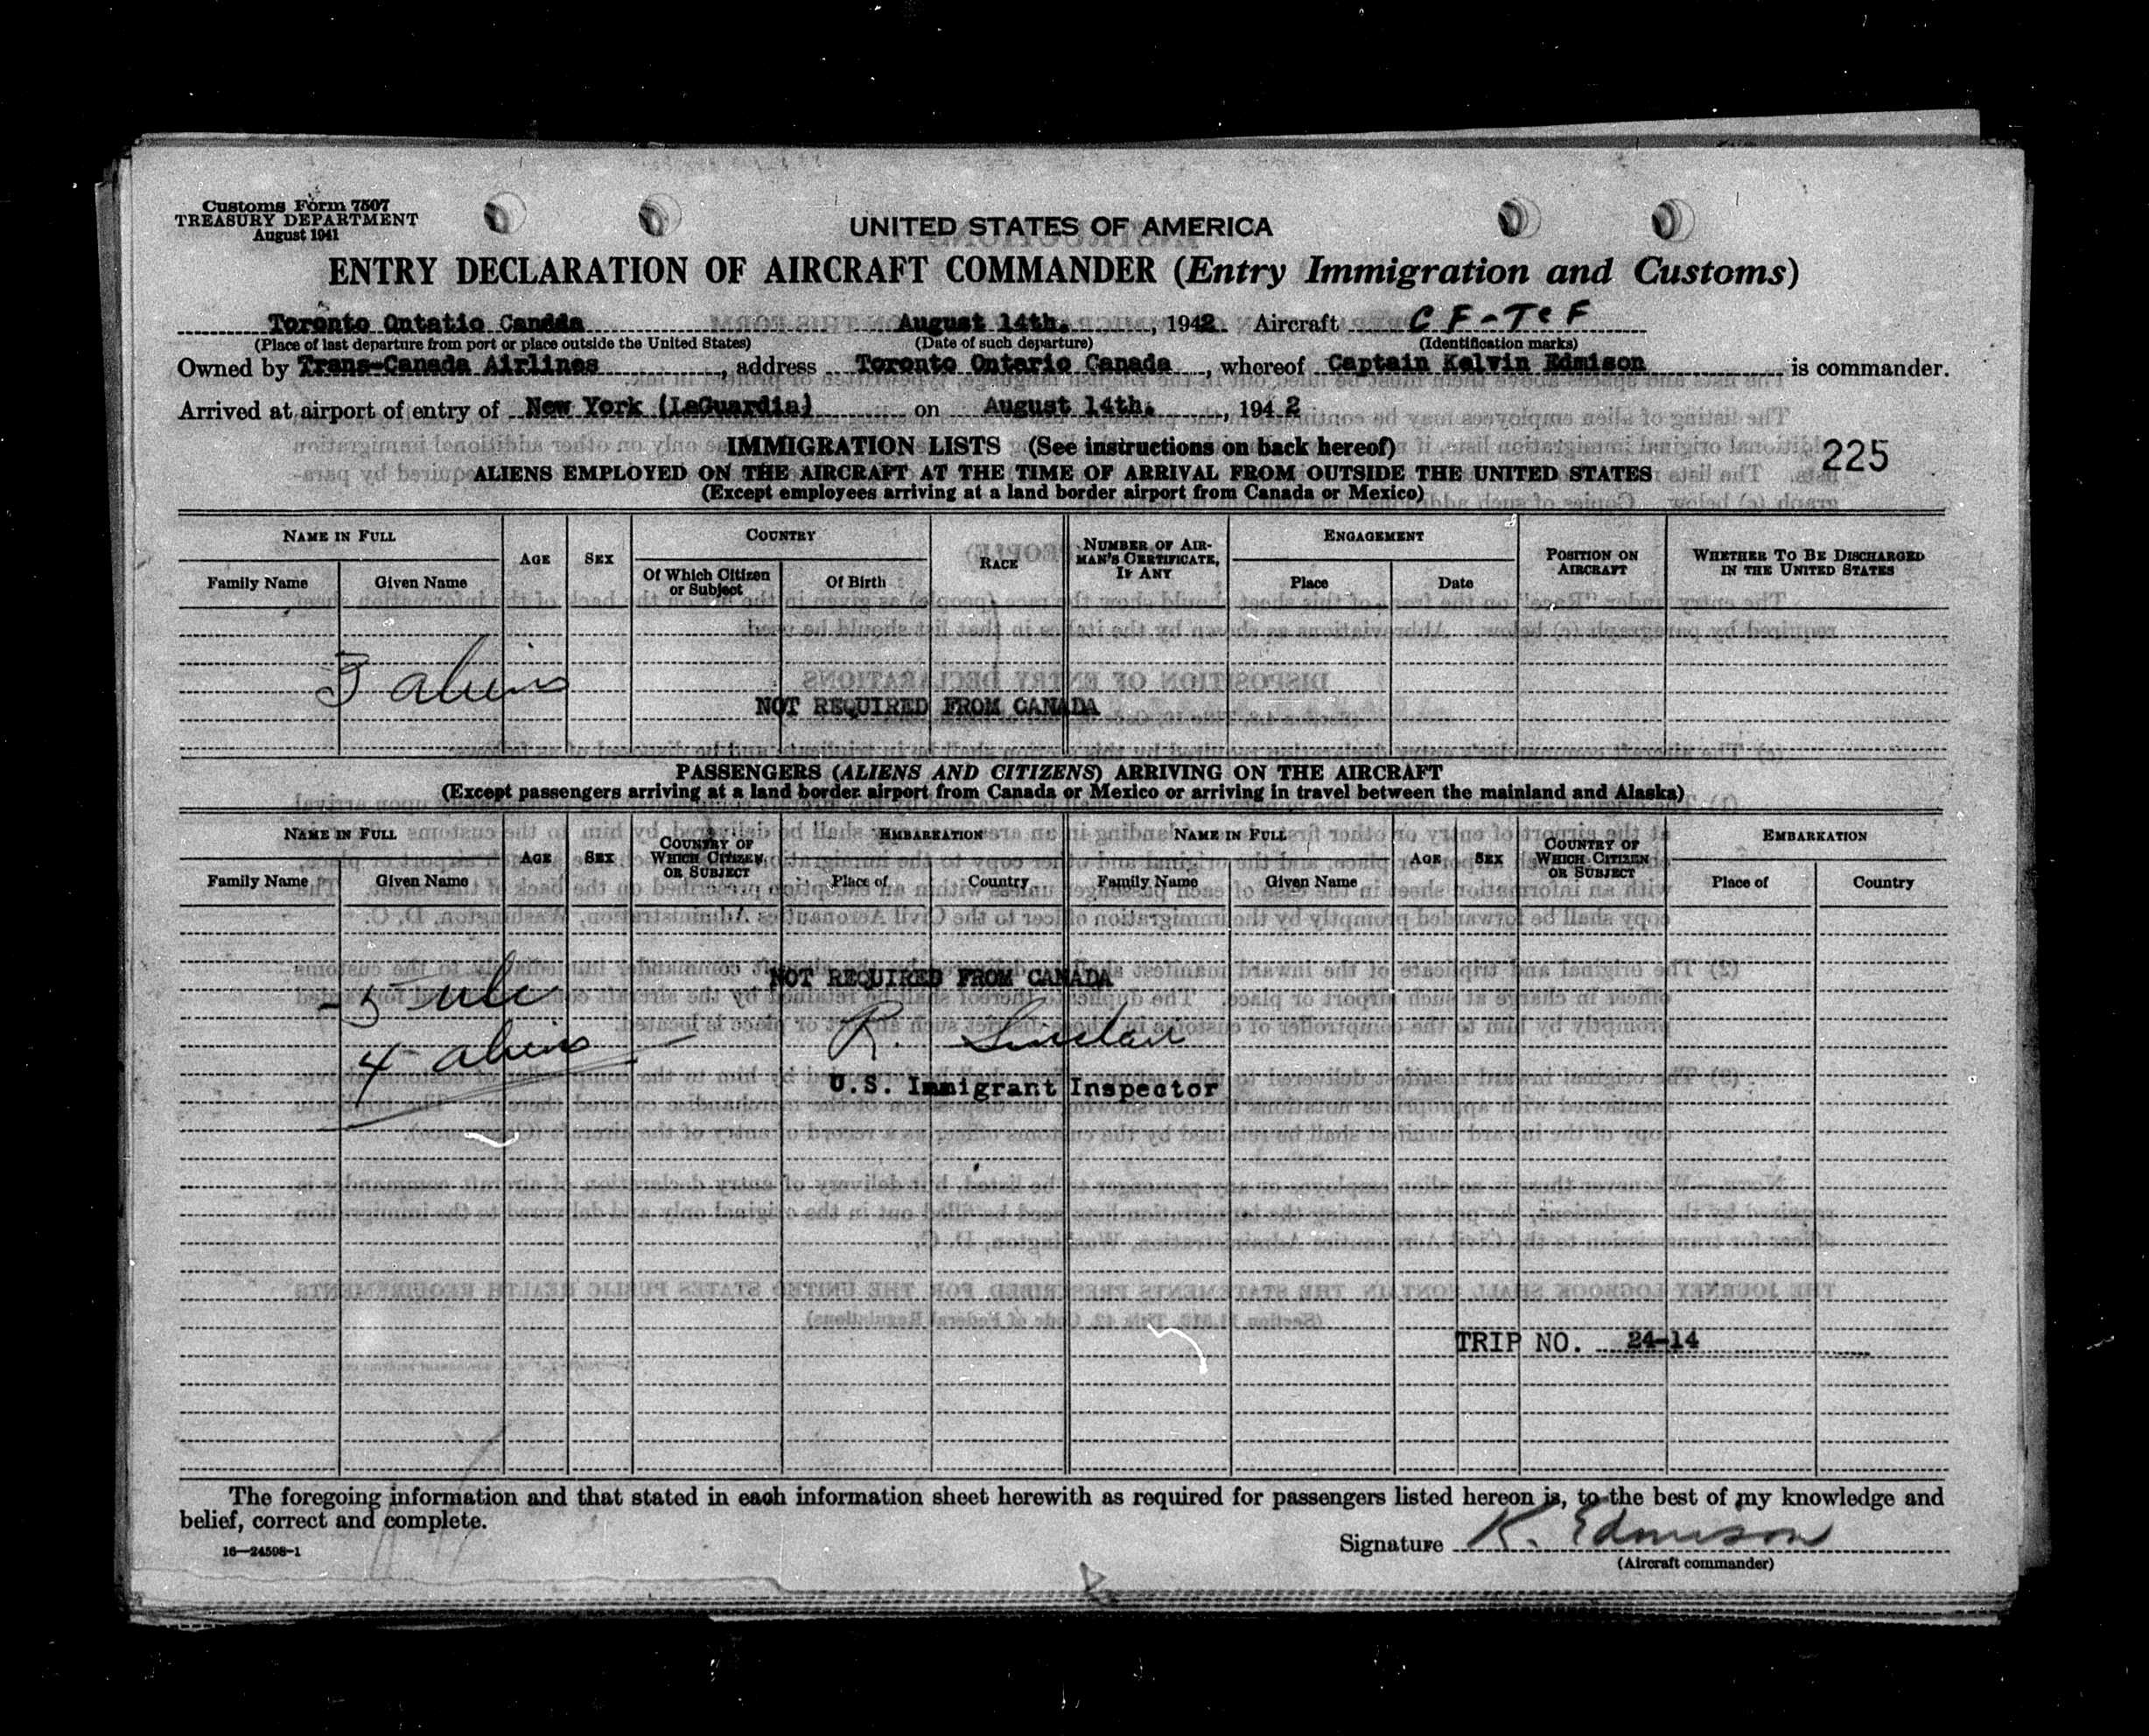 Customs Form 7507
TREASURY DEPARTMENT
August 1941
UNITED STATES OF AMERICA
ENTRY DECLARATION OF AIRCRAFT COMMANDER (Entry Immigration and Customs)
Toronto Ontatio Canada August 14th. , 1942 Aircraft CF-TCF
(Place of last departure from port or place outside the United States) (Date of such departure) (Identification marks)
Owned by Trans-Canada Airlines , address Toronto Ontario Canada , whereof Captain Kelvin Edmison is commander.
Arrived at airport of entry of New York (LaGuardia) on August 14th. , 1942
IMMIGRATION LISTS (See instructions on back hereof)
225
ALIENS EMPLOYED ON THE AIRCRAFT AT THE TIME OF ARRIVAL FROM OUTSIDE THE UNITED STATES
(Except employees arriving at a land border airport from Canada or Mexico)
NAME IN FULL AGE SEX COUNTRY RACE NUMBER OF AIRMAN'S CERTIFICATE, IF ANY ENGAGEMENT POSITION ON AIRCRAFT WHETHER TO BE DISCHARGED IN THE UNITED STATES
Family Name Given Name Of Which Citizen or Subject Of Birth Place Date
3 aliens
NOT REQUIRED FROM CANADA
PASSENGERS (ALIENS AND CITIZENS) ARRIVING ON THE AIRCRAFT
(Except passengers arriving at a land border airport from Canada or Mexico or arriving in travel between the mainland and Alaska)
NAME IN FULL AGE SEX COUNTRY OF WHICH CITIZEN OR SUBJECT EMBARKATION NAME IN FULL AGE SEX COUNTRY OF WHICH CITIZEN OR SUBJECT EMBARKATION
Family Name Given Name Place of Country Family Name Given Name Place of Country
NOT REQUIRED FROM CANADA
5
4 aliens
R. Sinclair
U.S. Immigrant Inspector
TRIP NO. 24-14
The foregoing information and that stated in each information sheet herewith as required for passengers listed hereon is, to the best of my knowledge and
belief, correct and complete.
Signature K. Edmison
16—24598-1
(Aircraft commander)